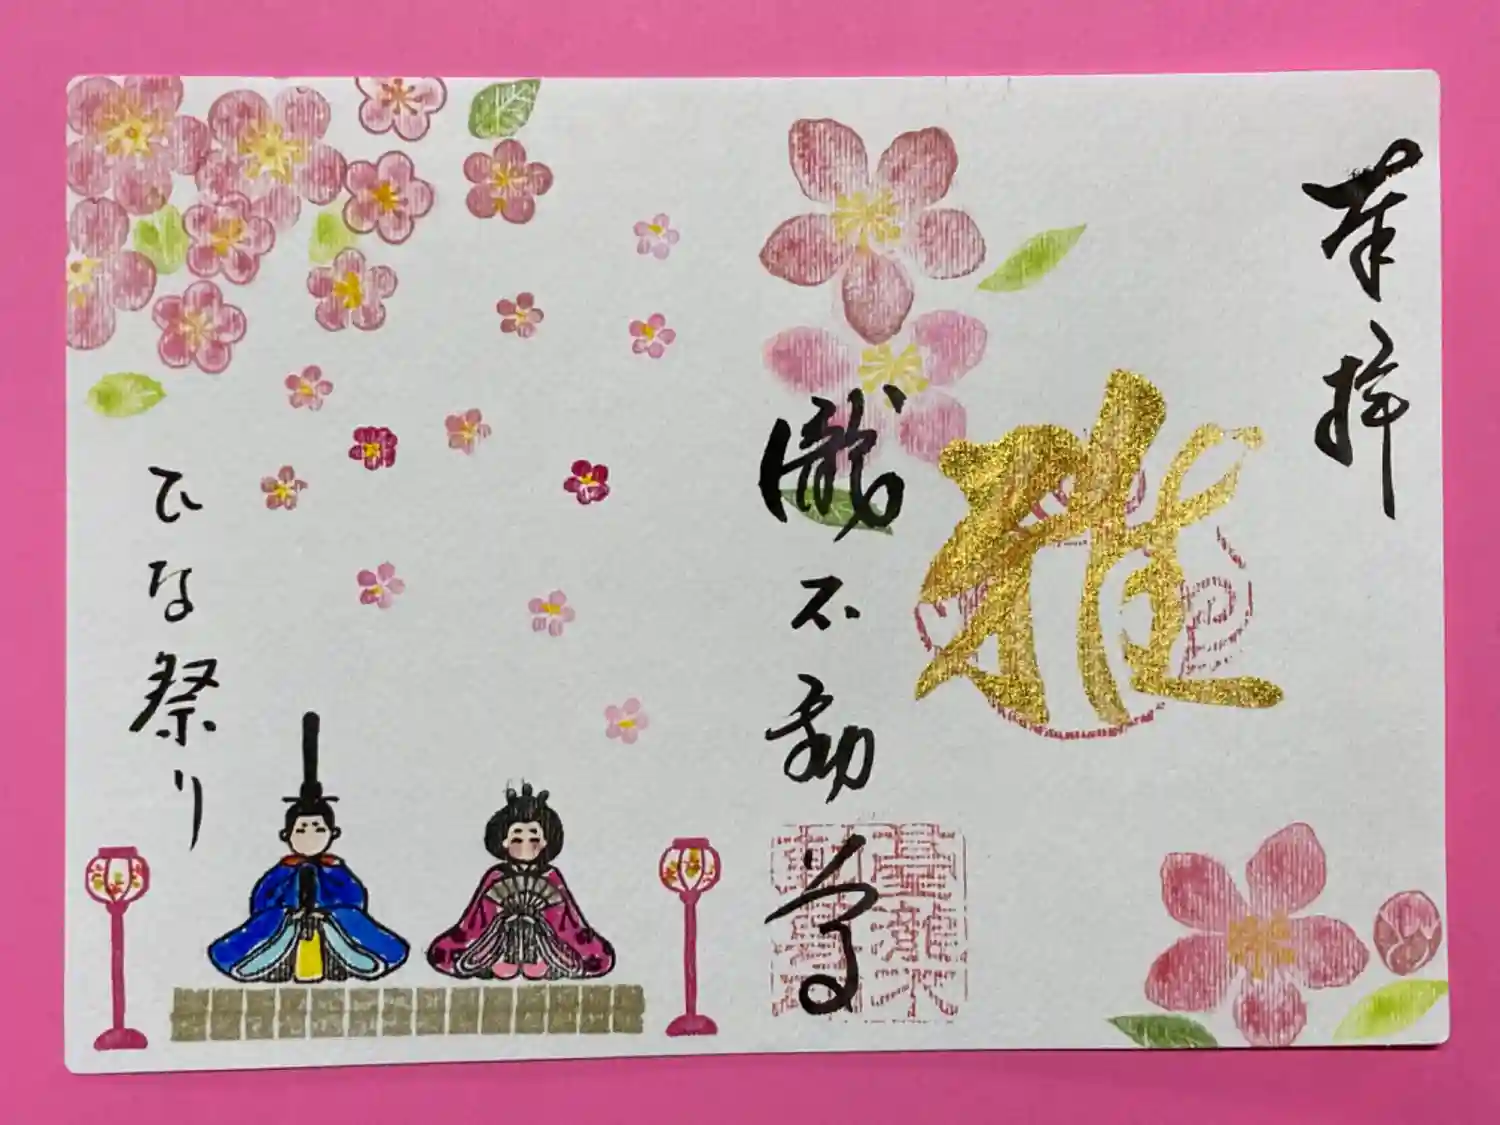 奉拝
雅
瀧不動尊
ひな祭り